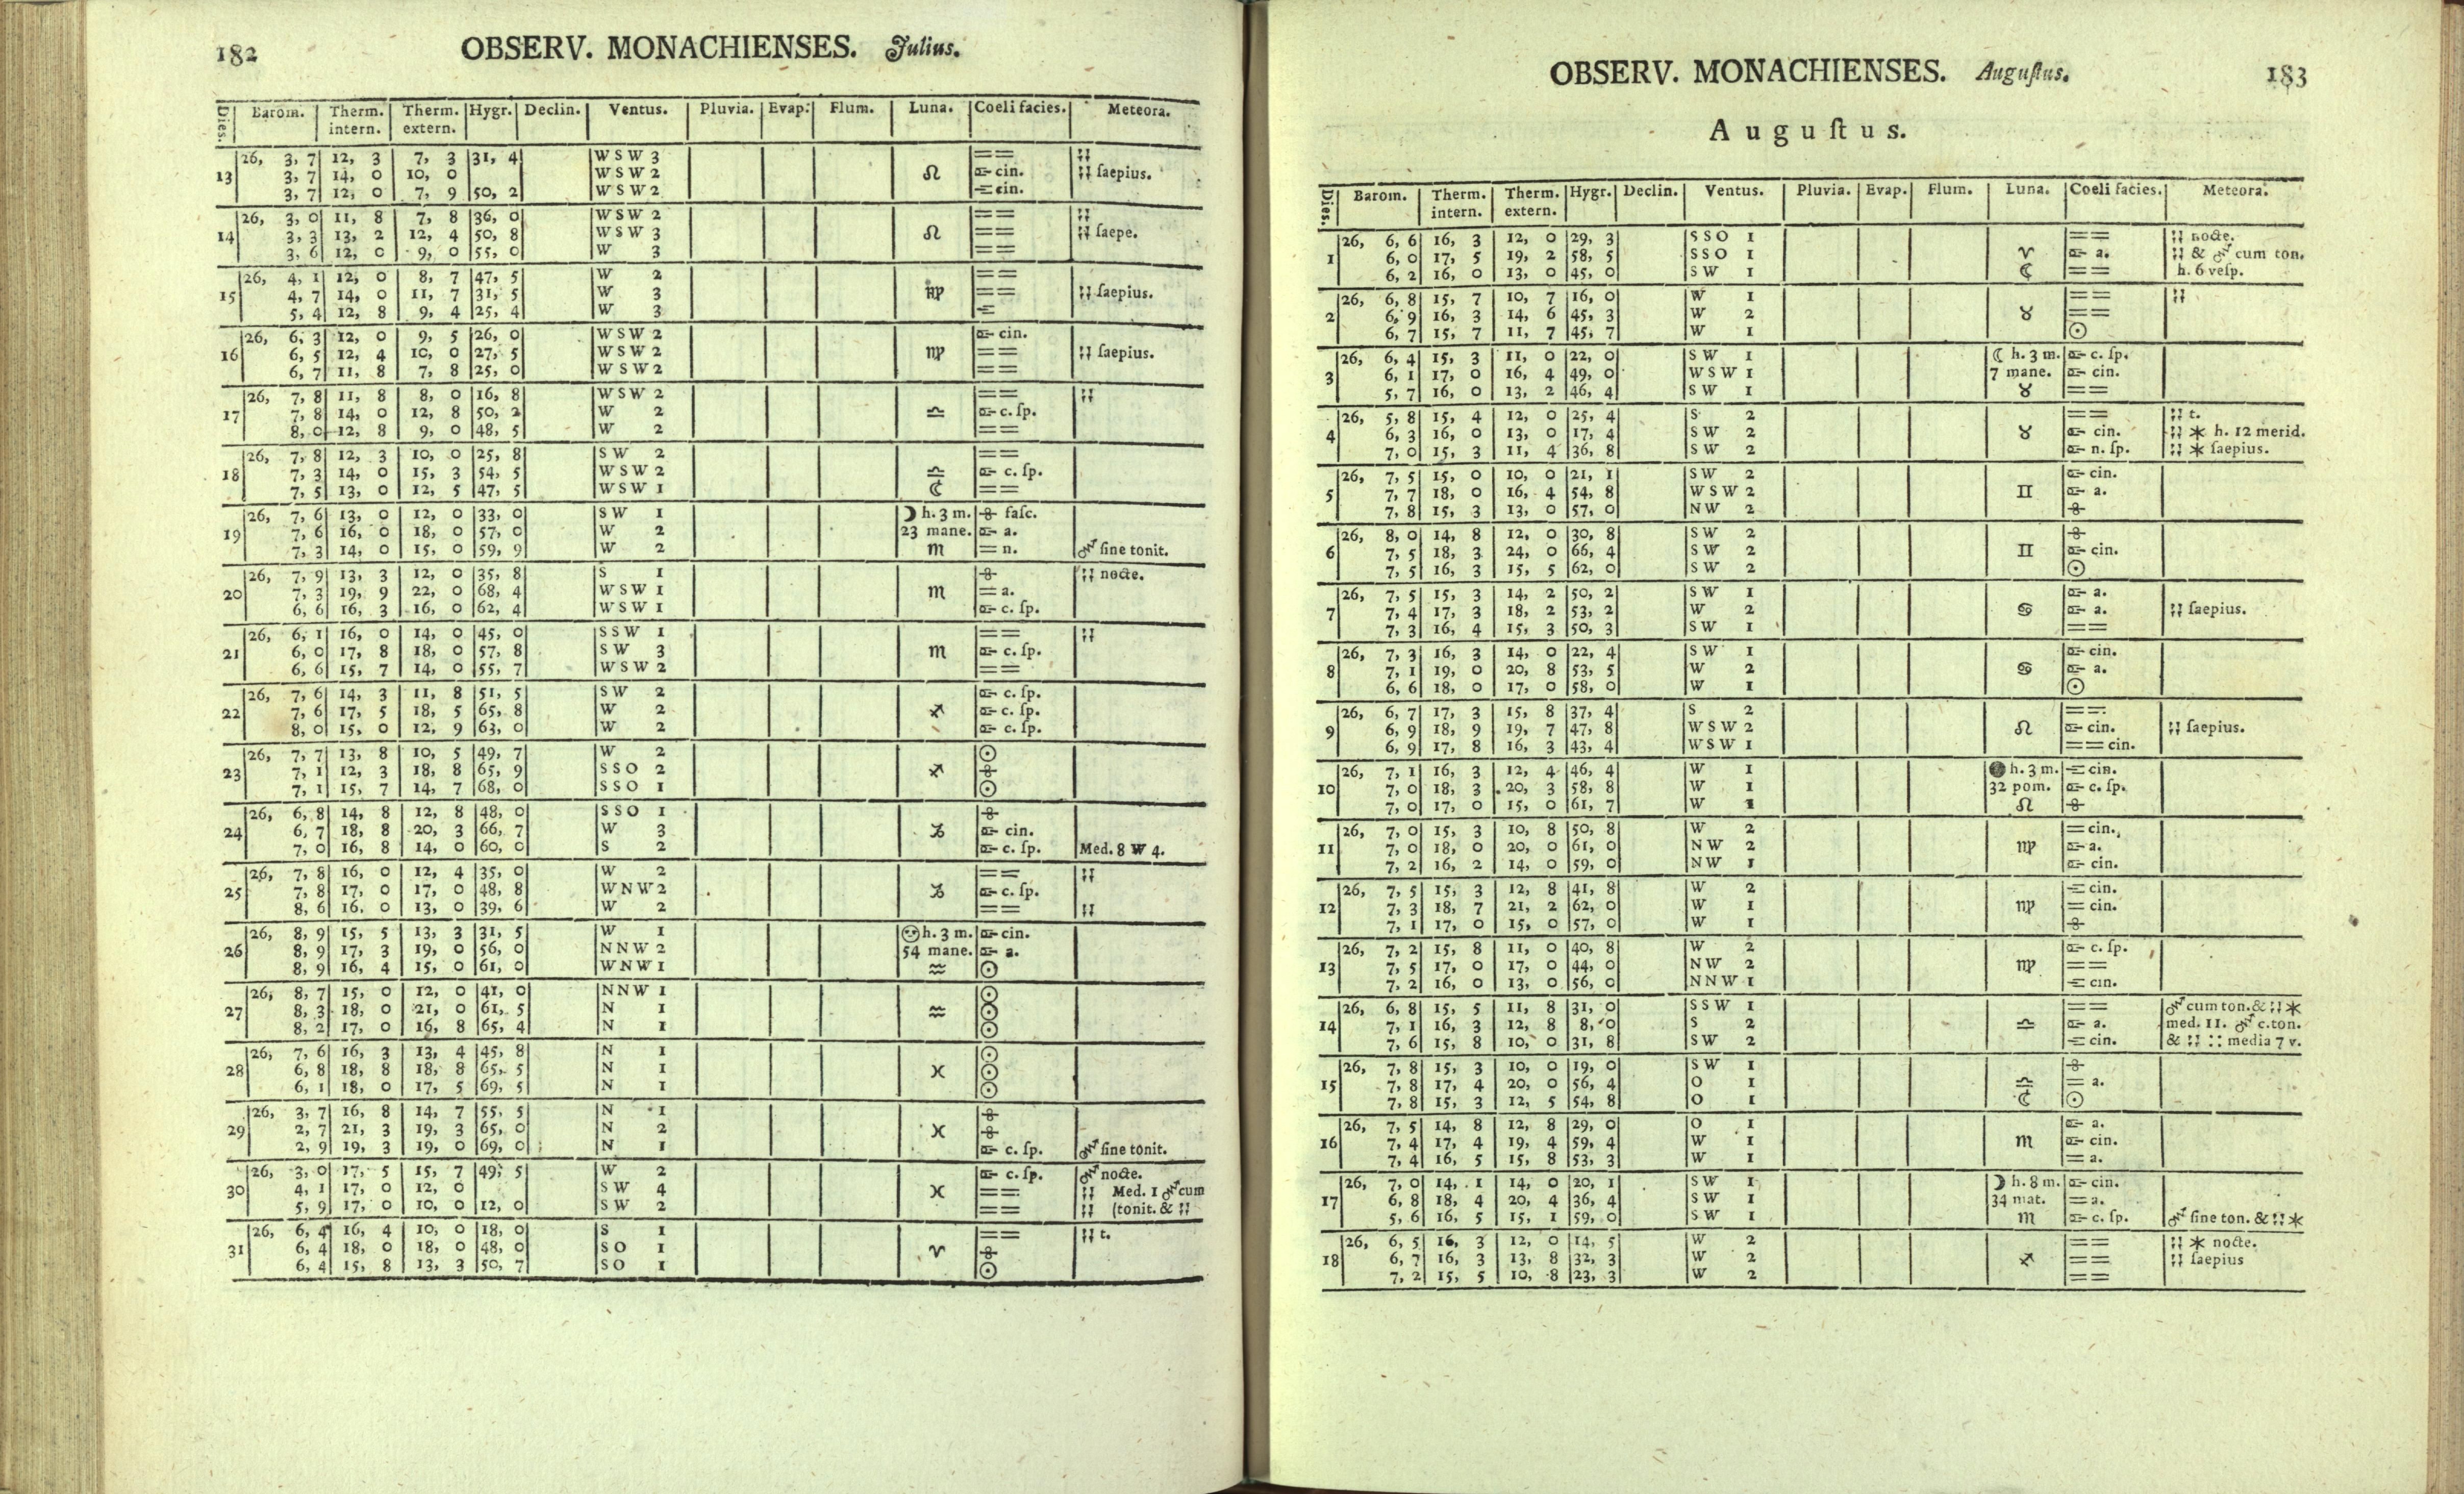 182 OBSERV. MONACHIENSES. Julius.
Dies. Barom. Therm. intern. Therm. extern. Hygr. Declin. Ventus. Pluvia. Evap. Flum. Luna. Coeli facies. Meteora.
13 26, 3, 7 12, 3 7, 3 31, 4 W S W 3 ==
3, 7 14, 0 10, 0 W S W 2 ♌ cin. ſaepius.
3, 7 12, 0 7, 9 50, 2 W S W 2 cin.
14 26, 3, 0 11, 8 7, 8 36, 0 W S W 2 ==
3, 3 13, 2 12, 4 50, 8 W S W 3 ♌ == ſaepe.
3, 6 12, 0 9, 0 55, 0 W 3 ==
15 26, 4, 1 12, 0 8, 7 47, 5 W 2 ==
4, 7 14, 0 11, 7 31, 5 W 3 ♍ == ſaepius.
5, 4 12, 8 9, 4 25, 4 W 3
16 26, 6, 3 12, 0 9, 5 26, 0 W S W 2 cin.
6, 5 12, 4 10, 0 27, 5 W S W 2 ♍ == ſaepius.
6, 7 11, 8 7, 8 25, 0 W S W 2 ==
17 26, 7, 8 11, 8 8, 0 16, 8 W S W 2 ==
7, 8 14, 0 12, 8 50, 2 W 2 ♎ c. ſp.
8, 0 12, 8 9, 0 48, 5 W 2 ==
18 26, 7, 8 12, 3 10, 0 25, 8 S W 2 ==
7, 3 14, 0 15, 3 54, 5 W S W 2 ♎ c. ſp.
7, 5 13, 0 12, 5 47, 5 W S W 1 ☾ ==
19 26, 7, 6 13, 0 12, 0 33, 0 S W 1 ☽ h. 3 m. faſc.
7, 6 16, 0 18, 0 57, 0 W 2 23 mane. a.
7, 3 14, 0 15, 0 59, 9 W 2 ♏ = n. ſine tonit.
20 26, 7, 9 13, 3 12, 0 35, 8 S 1 nocte.
7, 3 19, 9 22, 0 68, 4 W S W 1 ♏ = a.
6, 6 16, 3 16, 0 62, 4 W S W 1 c. ſp.
21 26, 6, 1 16, 0 14, 0 45, 0 S S W 1 ==
6, 0 17, 8 18, 0 57, 8 S W 3 ♏ c. ſp.
6, 6 15, 7 14, 0 55, 7 W S W 2 ==
22 26, 7, 6 14, 3 11, 8 51, 5 S W 2 c. ſp.
7, 6 17, 5 18, 5 65, 8 W 2 ♐ c. ſp.
8, 0 15, 0 12, 9 63, 0 W 2 c. ſp.
23 26, 7, 7 13, 8 10, 5 49, 7 W 2 ☉
7, 1 12, 3 18, 8 65, 9 S S O 2 ♐
7, 1 15, 7 14, 7 68, 0 S S O 1 ☉
24 26, 6, 8 14, 8 12, 8 48, 0 S S O 1
6, 7 18, 8 20, 3 66, 7 W 3 ♑ cin.
7, 0 16, 8 14, 0 60, 0 S 2 c. ſp. Med. 8 W 4.
25 26, 7, 8 16, 0 12, 4 35, 0 W 2 ==
7, 8 17, 0 17, 0 48, 8 W N W 2 ♑ c. ſp.
8, 6 16. 0 13, 0 39, 6 W 2 ==
26 26, 8, 9 15, 5 13, 3 31, 5 W 1 h. 3 m. cin.
8, 9 17, 3 19, 0 56, 0 N N W 2 54 mane. a.
8, 9 16, 4 15, 0 61, 0 W N W 1 ♒ ☉
27 26, 8, 7 15, 0 12, 0 41, 0 N N W 1 ☉
8, 3 18, 0 21, 0 61, 5 N 1 ♒ ☉
8, 2 17, 0 16, 8 65, 4 N 1 ☉
28 26, 7, 6 16, 3 13, 4 45, 8 N 1 ☉
6, 8 18, 8 18, 8 65, 5 N 1 ♓ ☉
6, 1 18, 0 17, 5 69, 5 N 1 ☉
29 26, 3, 7 16, 8 14, 7 55, 5 N 1
2, 7 21, 3 19, 3 65, 0 N 2 ♓
2, 9 19, 3 19, 0 69, 0 N 1 c. ſp. ſine tonit.
30 26, 3, 0 17, 5 15, 7 49, 5 W 2 c. ſp. nocte.
4, 1 17, 0 12, 0 S W 4 ♓ == Med. 1 cum
5, 9 17, 0 10, 0 12, 0 S W 2 == (tonit. &
31 26, 6, 4 16, 4 10, 0 18, 0 S 1 == t.
6, 4 18, 0 18, 0 48, 0 S O 1 ♈
6, 4 15, 8 13, 3 50, 7 S O 1 ☉
OBSERV. MONACHIENSES. Auguſtus. 183
Auguſtus.
Dies. Barom. Therm. intern. Therm. extern. Hygr. Declin. Ventus. Pluvia. Evap. Flum. Luna. Coeli facies. Meteora.
1 26, 6, 6 16, 3 12, 0 29, 3 S S O 1 == nocte.
6, 0 17, 5 19, 2 58, 5 S S O 1 ♈ a. & cum ton.
6, 2 16, 0 13, 0 45, 0 S W 1 ☾ == h. 6 veſp.
2 26, 6, 8 15, 7 10, 7 16, 0 W 1 ==
6, 9 16, 3 14, 6 45, 3 W 2 ♉ ==
6, 7 15, 7 11, 7 45, 7 W 1 ☉
3 26, 6, 4 15, 3 11, 0 22, 0 S W 1 ☾ h. 3 m. c. ſp.
6, 1 17, 0 16, 4 49, 0 W S W 1 7 mane. cin.
5, 7 16, 0 13, 2 46, 4 S W 1 ♉ ==
4 26, 5, 8 15, 4 12, 0 25, 4 S 2 == t.
6, 3 16, 0 13, 0 17, 4 S W 2 ♉ cin. * h. 12 merid.
7, 0 15, 3 11, 4 36, 8 S W 2 n. ſp. * ſaepius.
5 26, 7, 5 15, 0 10, 0 21, 1 S W 2 cin.
7, 7 18, 0 16, 4 54, 8 W S W 2 ♊ a.
7, 8 15, 3 13, 0 57, 0 N W 2
6 26, 8, 0 14, 8 12, 0 30, 8 S W 2
7, 5 18, 3 24, 0 66, 4 S W 2 ♊ cin.
7, 5 16, 3 15, 5 62, 0 S W 2 ☉
7 26, 7, 5 15, 3 14, 2 50, 2 S W 1 a.
7, 4 17, 3 18, 2 53, 2 W 2 ♋ a. ſaepius.
7, 3 16, 4 15, 3 50, 3 S W 1 ==
8 26, 7, 3 16, 3 14, 0 22, 4 S W 1 cin.
7, 1 19, 0 20, 8 53, 5 W 2 ♋ a.
6, 6 18, 0 17, 0 58, 0 W 1 ☉
9 26, 6, 7 17, 3 15, 8 37, 4 S 2 ==
6, 9 18, 9 19, 7 47, 8 W S W 2 ♌ cin. ſaepius.
6, 9 17, 8 16, 3 43, 4 W S W 1 == cin.
10 26, 7, 1 16, 3 12, 4 46, 4 W 1 ● h. 3 m. cin.
7, 0 18, 3 20, 3 58, 8 W 1 32 pom. c. ſp.
7, 0 17, 0 15, 0 61, 7 W 1 ♌
11 26, 7, 0 15, 3 10, 8 50, 8 W 2 = cin.
7, 0 18, 0 20, 0 61, 0 N W 2 ♍ a.
7, 2 16, 2 14, 0 59, 0 N W 1 cin.
12 26, 7, 5 15, 3 12, 8 41, 8 W 2 cin.
7, 3 18, 7 21, 2 62, 0 W 1 ♍ = cin.
7, 1 17, 0 15, 0 57, 0 W 1
13 26, 7, 2 15, 8 11, 0 40, 8 W 2 c. ſp.
7, 5 17, 0 17, 0 44, 0 N W 2 ♍ ==
7, 2 16, 0 13, 0 56, 0 N N W 1 cin.
14 26, 6, 8 15, 5 11, 8 31, 0 S S W 1 == cum ton. & *
7, 1 16, 3 12, 8 8, 0 S 2 ♎ a. med. 11. c. ton.
7, 6 15, 8 10, 0 31, 8 S W 2 cin. & :: media 7 v.
15 26, 7, 8 15, 3 10, 0 19, 0 S W 1
7, 8 17, 4 20, 0 56, 4 O 1 ♎ = a.
7, 8 15, 3 12, 5 54, 8 O 1 ☾ ☉
16 26, 7, 5 14, 8 12, 8 29, 0 O 1 a.
7, 4 17, 4 19, 4 59, 4 W 1 ♏ cin.
7, 4 16, 5 15, 8 53, 3 W 1 = a.
17 26, 7, 0 14, 1 14, 0 20, 1 S W 1 ☽ h. 8 m. cin.
6, 8 18, 4 20, 4 36, 4 S W 1 34 mat. = a.
5, 6 16, 5 15, 1 59, 0 S W 1 ♏ c. ſp. ſine ton. & *
18 26, 6, 5 16, 3 12, 0 14, 5 W 2 == * nocte.
6, 7 16, 3 13, 8 32, 3 W 2 ♐ == ſaepius
7, 2 15, 5 10, 8 23, 3 W 2 ==